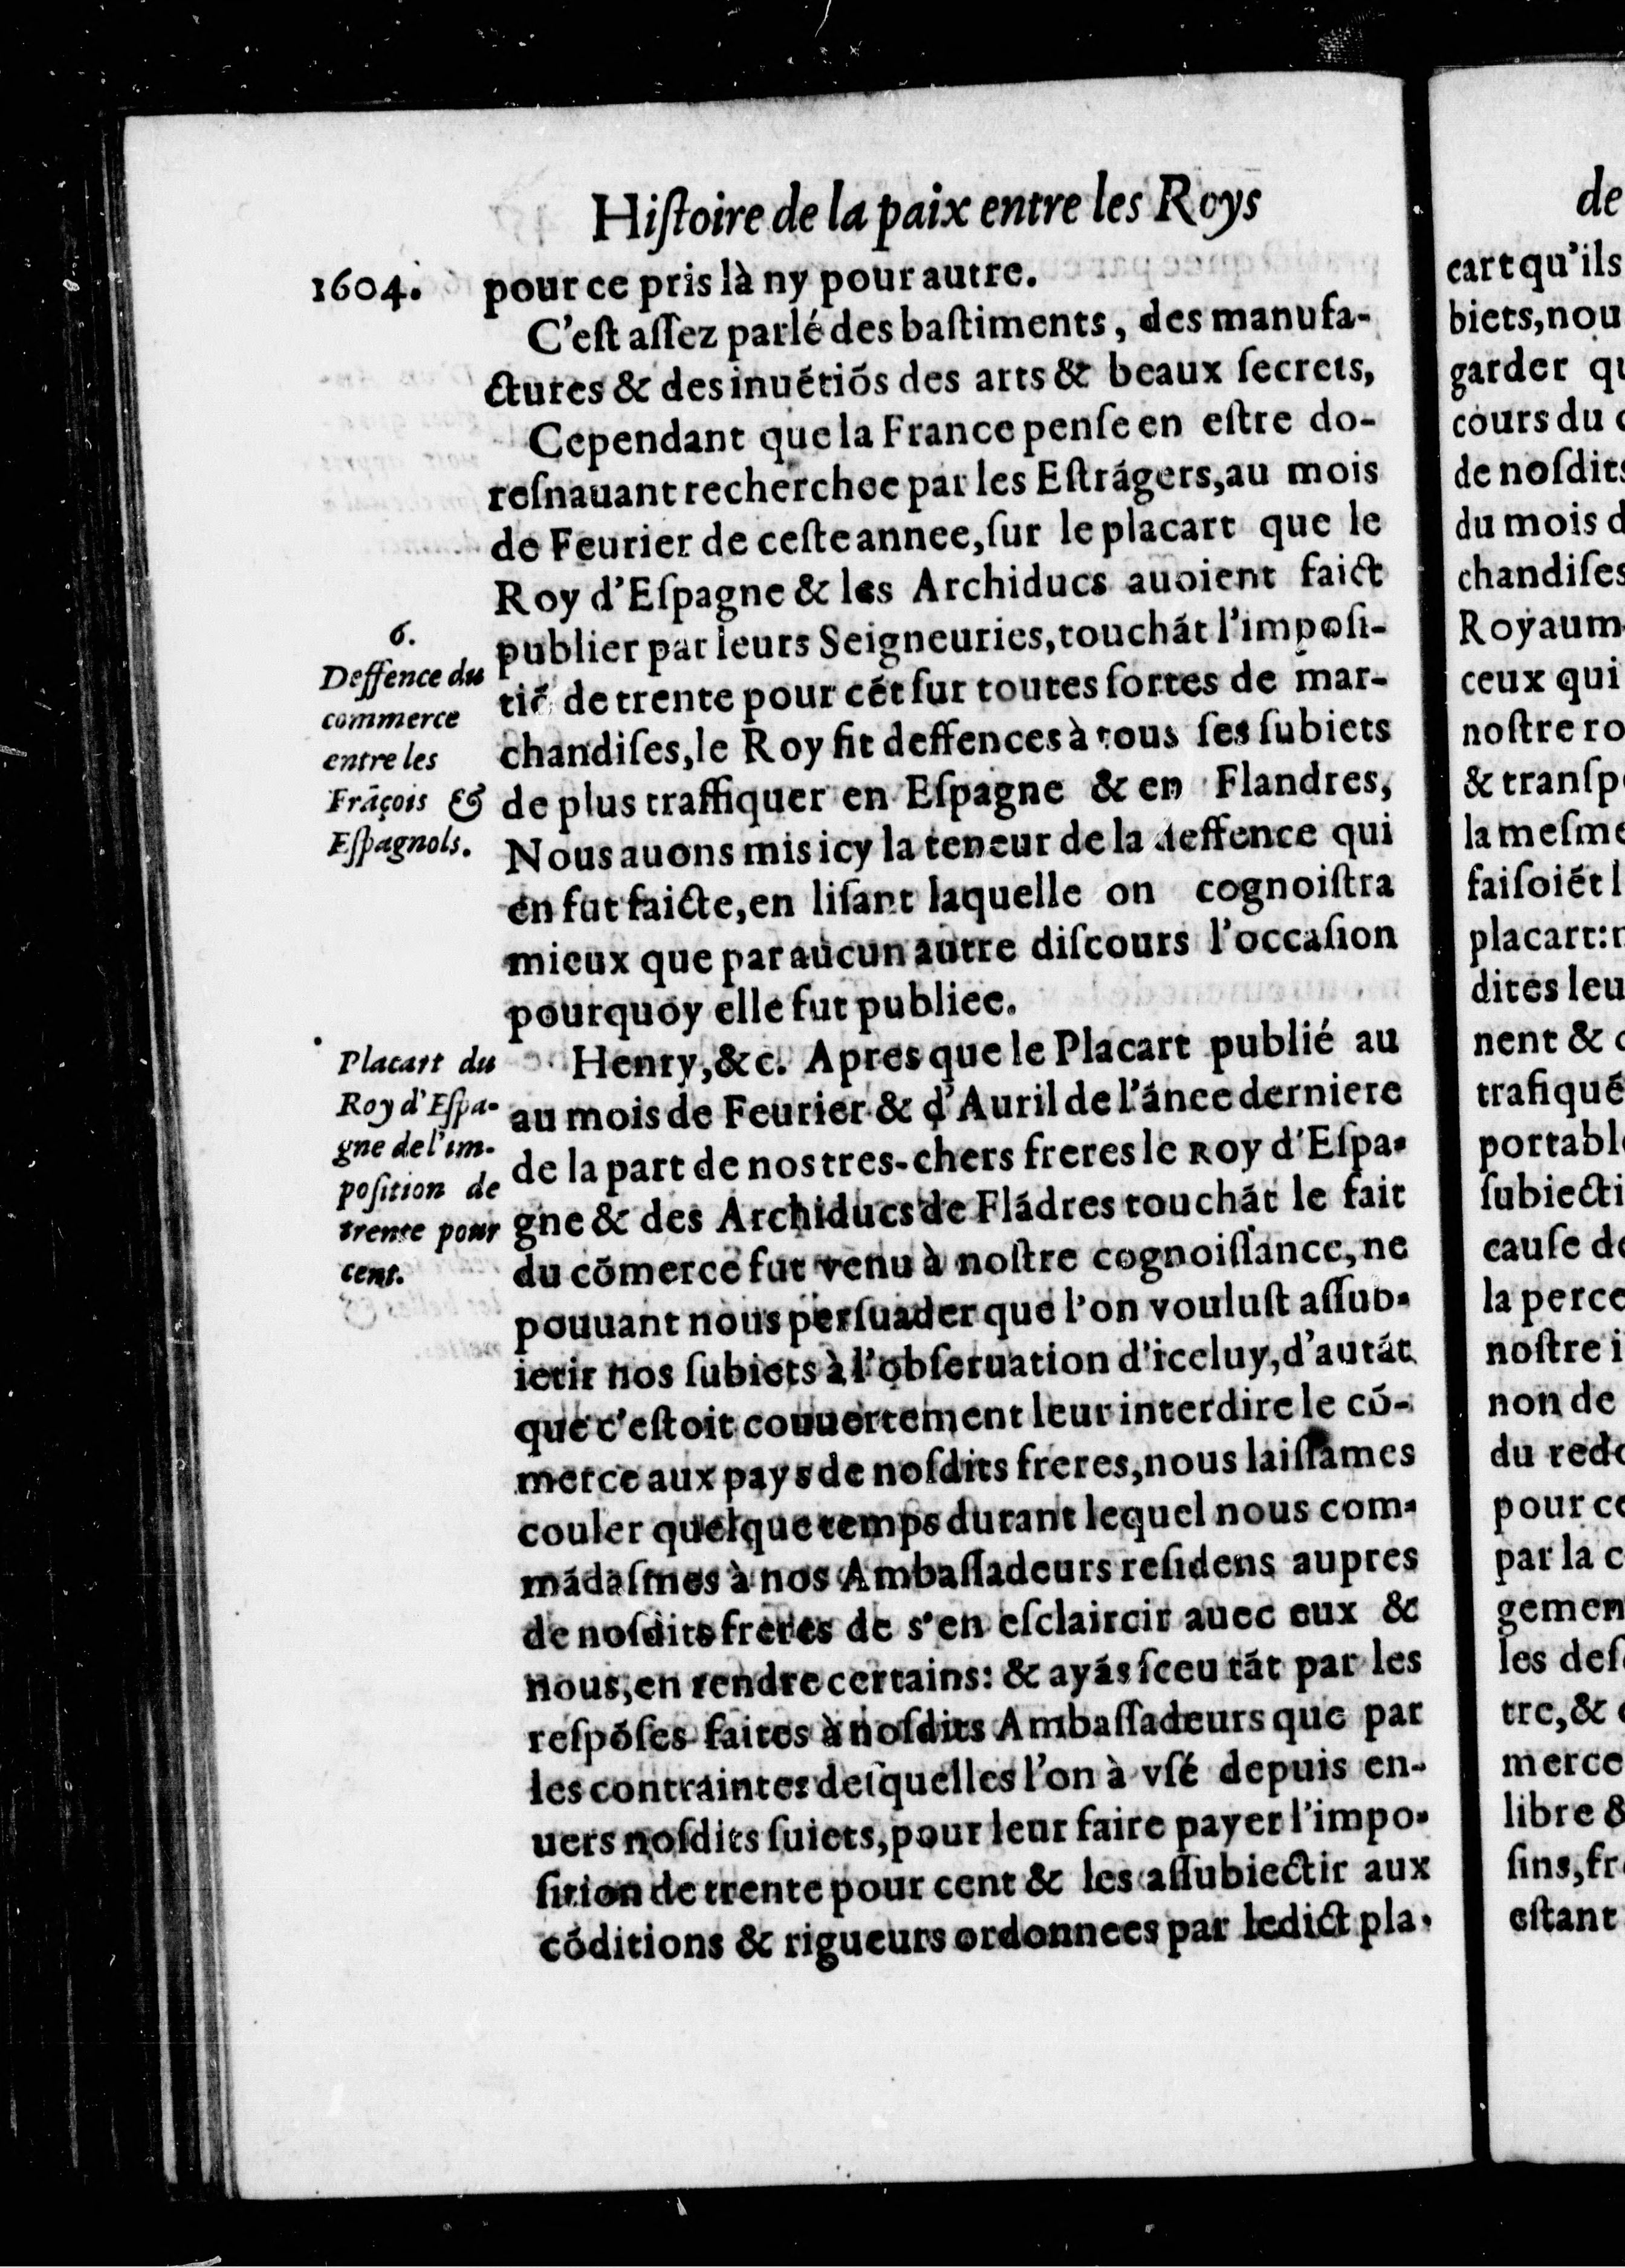 Hiſtoire de la paix entre les Roys
1604.
pour ce pris là ny pour autre.
C'eſt aſſez parlé des baſtiments, des manufa-
ctures & des inuẽtiõs des arts & beaux ſecrets,
Cependant que la France penſe en eſtre do-
reſnauant recherchee par les Eſtrãgers, au mois
de Feurier de ceſte annee, ſur le placart que le
Roy d'Eſpagne & les Archiducs auoient faict
publier par leurs Seigneuries, touchãt l'impoſi-
tiõ de trente pour cẽt ſur toutes ſortes de mar-
chandiſes, le Roy fit deffences à tous ſes ſubiets
de plus traffiquer en Eſpagne & en Flandres,
Nous auons mis icy la teneur de la deffence qui
en fut faicte, en liſant laquelle on cognoiſtra
mieux que par aucun autre diſcours l'occaſion
pourquoy elle fut publiee.
6.
Deffence du
commerce
entre les
Frãçois &
Eſpagnols.
Henry, &c. Apres que le Placart publié au
au mois de Feurier & d'Auril de l'ãnee derniere
de la part de nos tres-chers freres le Roy d'Eſpa-
gne & des Archiducs de Flãdres touchãt le fait
du cõmerce fut venu à noſtre cognoiſſance, ne
pouuant nous perſuader que l'on vouluſt aſſub-
ietir nos ſubiets à l'obſeruation d'iceluy, d'autãt
que c'eſtoit couuertement leur interdire le cõ-
merce aux pays de noſdits freres, nous laiſſames
couler quelque temps durant lequel nous com-
mãdaſmes à nos Ambaſſadeurs reſidens aupres
de noſdits freres de s'en eſclaircir auec eux &
nous, en rendre certains: & ayãs ſceu tãt par les
reſpõſes faites à noſdits Ambaſſadeurs que par
les contraintes deſquelles l'on à vſé depuis en-
uers noſdits ſuiets, pour leur faire payer l'impo-
ſition de trente pour cent & les aſſubiectir aux
cõditions & rigueurs ordonnees par ledict pla-
Placart du
Roy d'Eſpa-
gne de l'im-
poſition de
trente pour
cent.
de
cart qu'ils
biets, nou
garder qu
cours du
de noſdits
du mois d
chandiſes
Royaum
ceux qui
noſtre ro
& tranſp
la meſme
faiſoiẽt l
placart:
dites leu
nent &
trafiquẽ
portabl
ſubiecti
cauſe de
la perce
noſtre i
non de
du redo
pour ce
par la c
gemen
les deſ
tre, &
merce
libre &
ſins, fr
eſtant